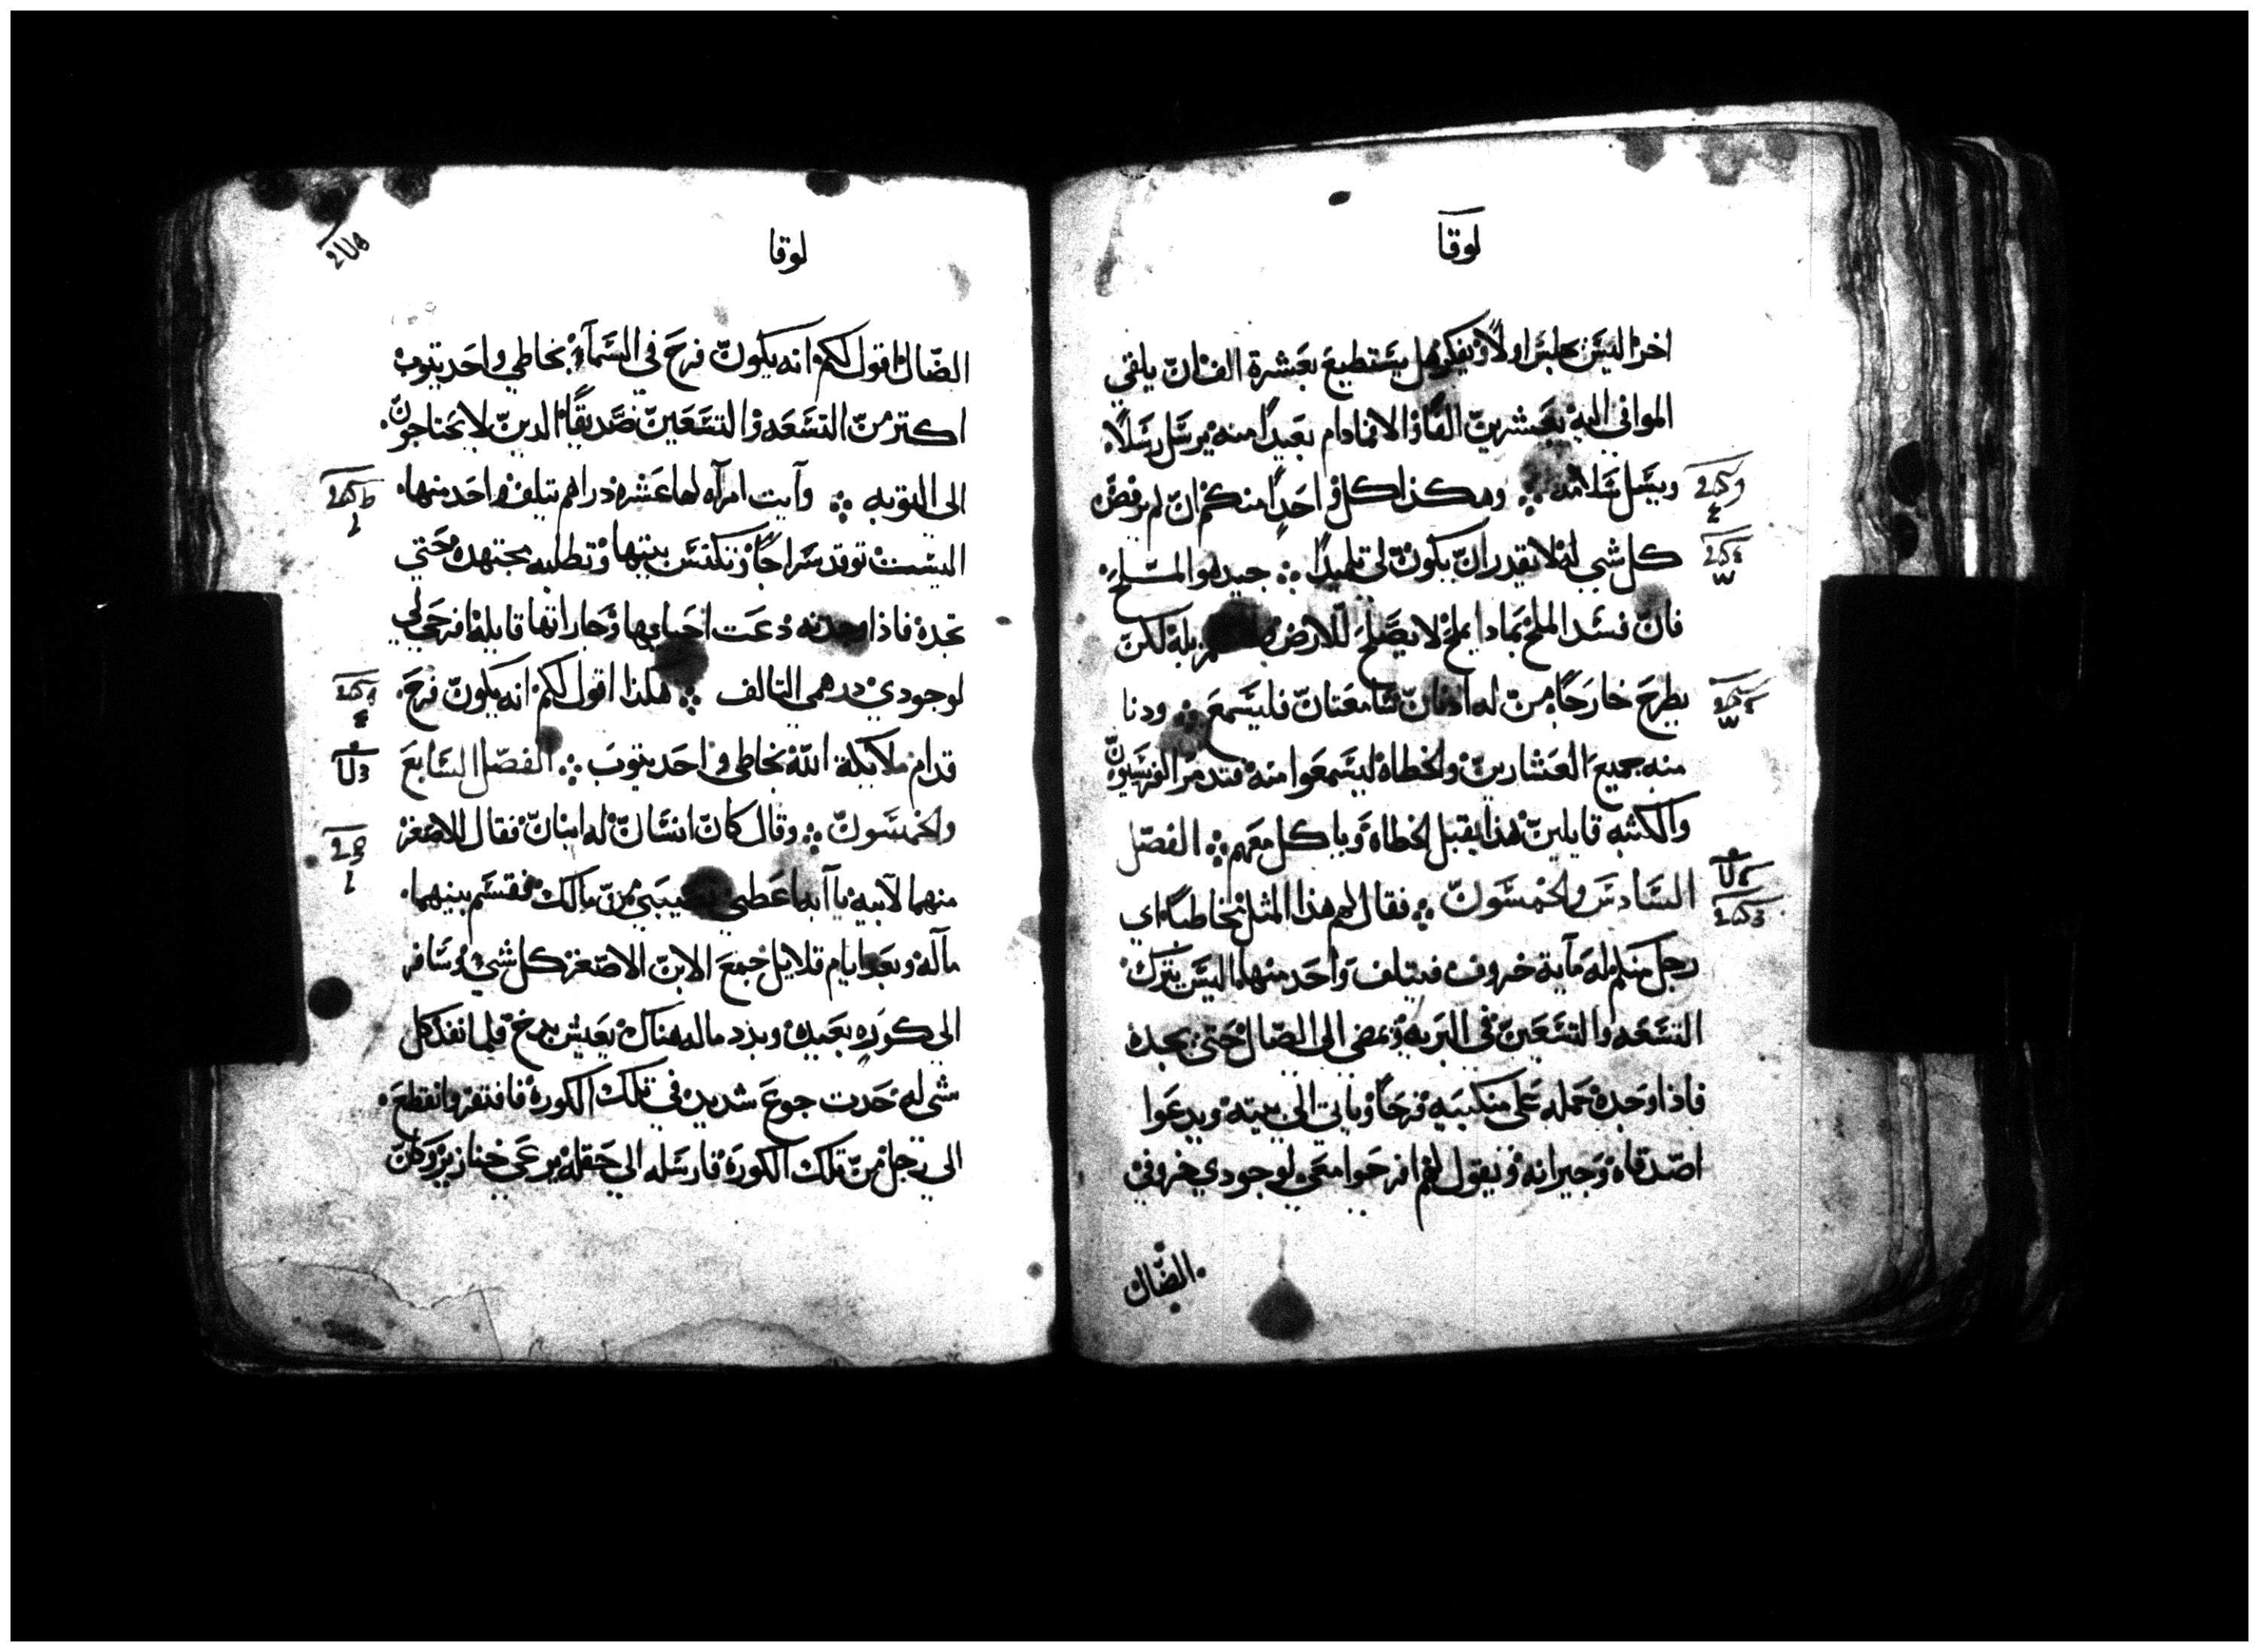 لوقا
اخر اليس يجلس اولا ويفكر هل يستطيع بعشرة الف ان يلقي
الموافي اليه بعشرين الفا والا فمادام بعيدا منه يرسل رسلا
ويسل سلامه ⁘ وهكذا كل واحد منكم ان لم يرفض
كل شي له لا يقدر ان يكون لي تلميدا ⁘ جيد هو الملح
فان فسد الملح بمادا يملح لا يصلح للارض لكن
يطرح خارجا من له ادنان سامعتان فليسمع ⁘ ودنا
منه جميع العشارين والخطاه ليسمعوا منه فتدمر الفريسيون
والكتبه قايلين هذا يقبل الخطاه وياكل معهم ⁘ الفصل
السادس والخمسون ⁘ فقال لهم هذا المثل مخاطبا اي
رجل منكم له مآية خروف فيتلف واحد منها اليس يترك
التسعه والتسعين في البريه ويمضي الى الضال حتى يجده
فاذا وجده حمله على منكبيه فرحا وياتي الى بيته ويدعوا
اصدقاه وجيرانه ويقول لهم افرحوا معي لوجودي خروفي
الضال
لوقا
الضال اقول لكم انه يكون فرح في السمآء بخاطي واحد يتوب
اكتر من التسعه والتسعين صديقا الدين لا يحتاجون
الى التوبه ⁘ وآيت امرآه لها عشره دراهم تتلف واحد منها
اليست توقد سراجا وتكنس بيتها وتطلبه مجتهده حتي
تجده فاذا وجدته دعت احبابها وجاراتها قايله افرحي لي
لوجودي درهمي التالف ⁘ هكذا اقول لكم انه يكون فرح
قدام ملايكة الله بخاطي واحد يتوب ⁘ الفصل السابع
والخمسون ⁘ وقال كان انسان له ابنان فقال الاصغر
منهما لابيه يا آبه اعطيي نصيبي من مالك فقسم بينهما
مآله وبعد ايام قلايل جمع الابن الاصغر كل شي وسافر
الى كوره بعيده وبدد ماله هناك بعيش بدخ فلما نفد كل
شي له حدت جوع شديد في تلك الكوره فافتقر وانقطع
الى رجل من تلك الكوره فارسله الي حقله يرعي خنازير وكان